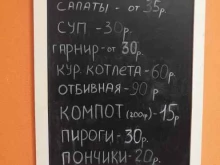 САЛАТЫ - от 35р.
СУП - 30р.
ГАРНИР - от 30р.
КУР. КОТЛЕТА - 60р.
ОТБИВНАЯ - 90р
КОМПОТ (200гр.) - 15р.
ПИРОГИ - 30р.
ПОНЧИКИ - 20р.